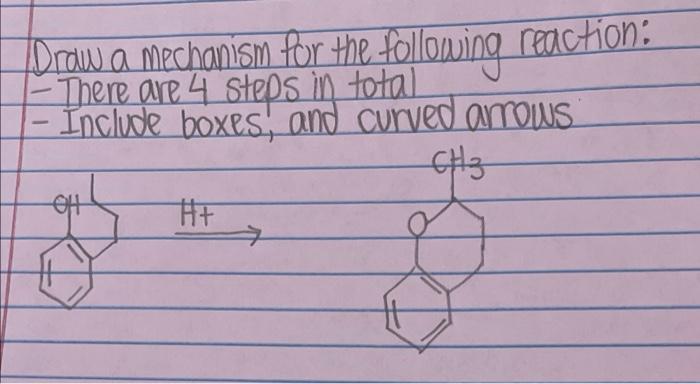 Draw a mechanism for the following reaction:
- There are 4 steps in total
- Include boxes, and curved arrows
CH3
OH
H+
O